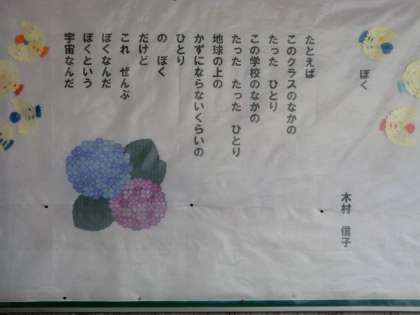 ぼく
木村　信子
たとえば
このクラスのなかの
たった　ひとり
この学校のなかの
たった　たった　ひとり
地球の上の
かずにならないくらいの
ひとり
の　ぼく
だけど
これ　ぜんぶ
ぼくなんだ
ぼくという
宇宙なんだ